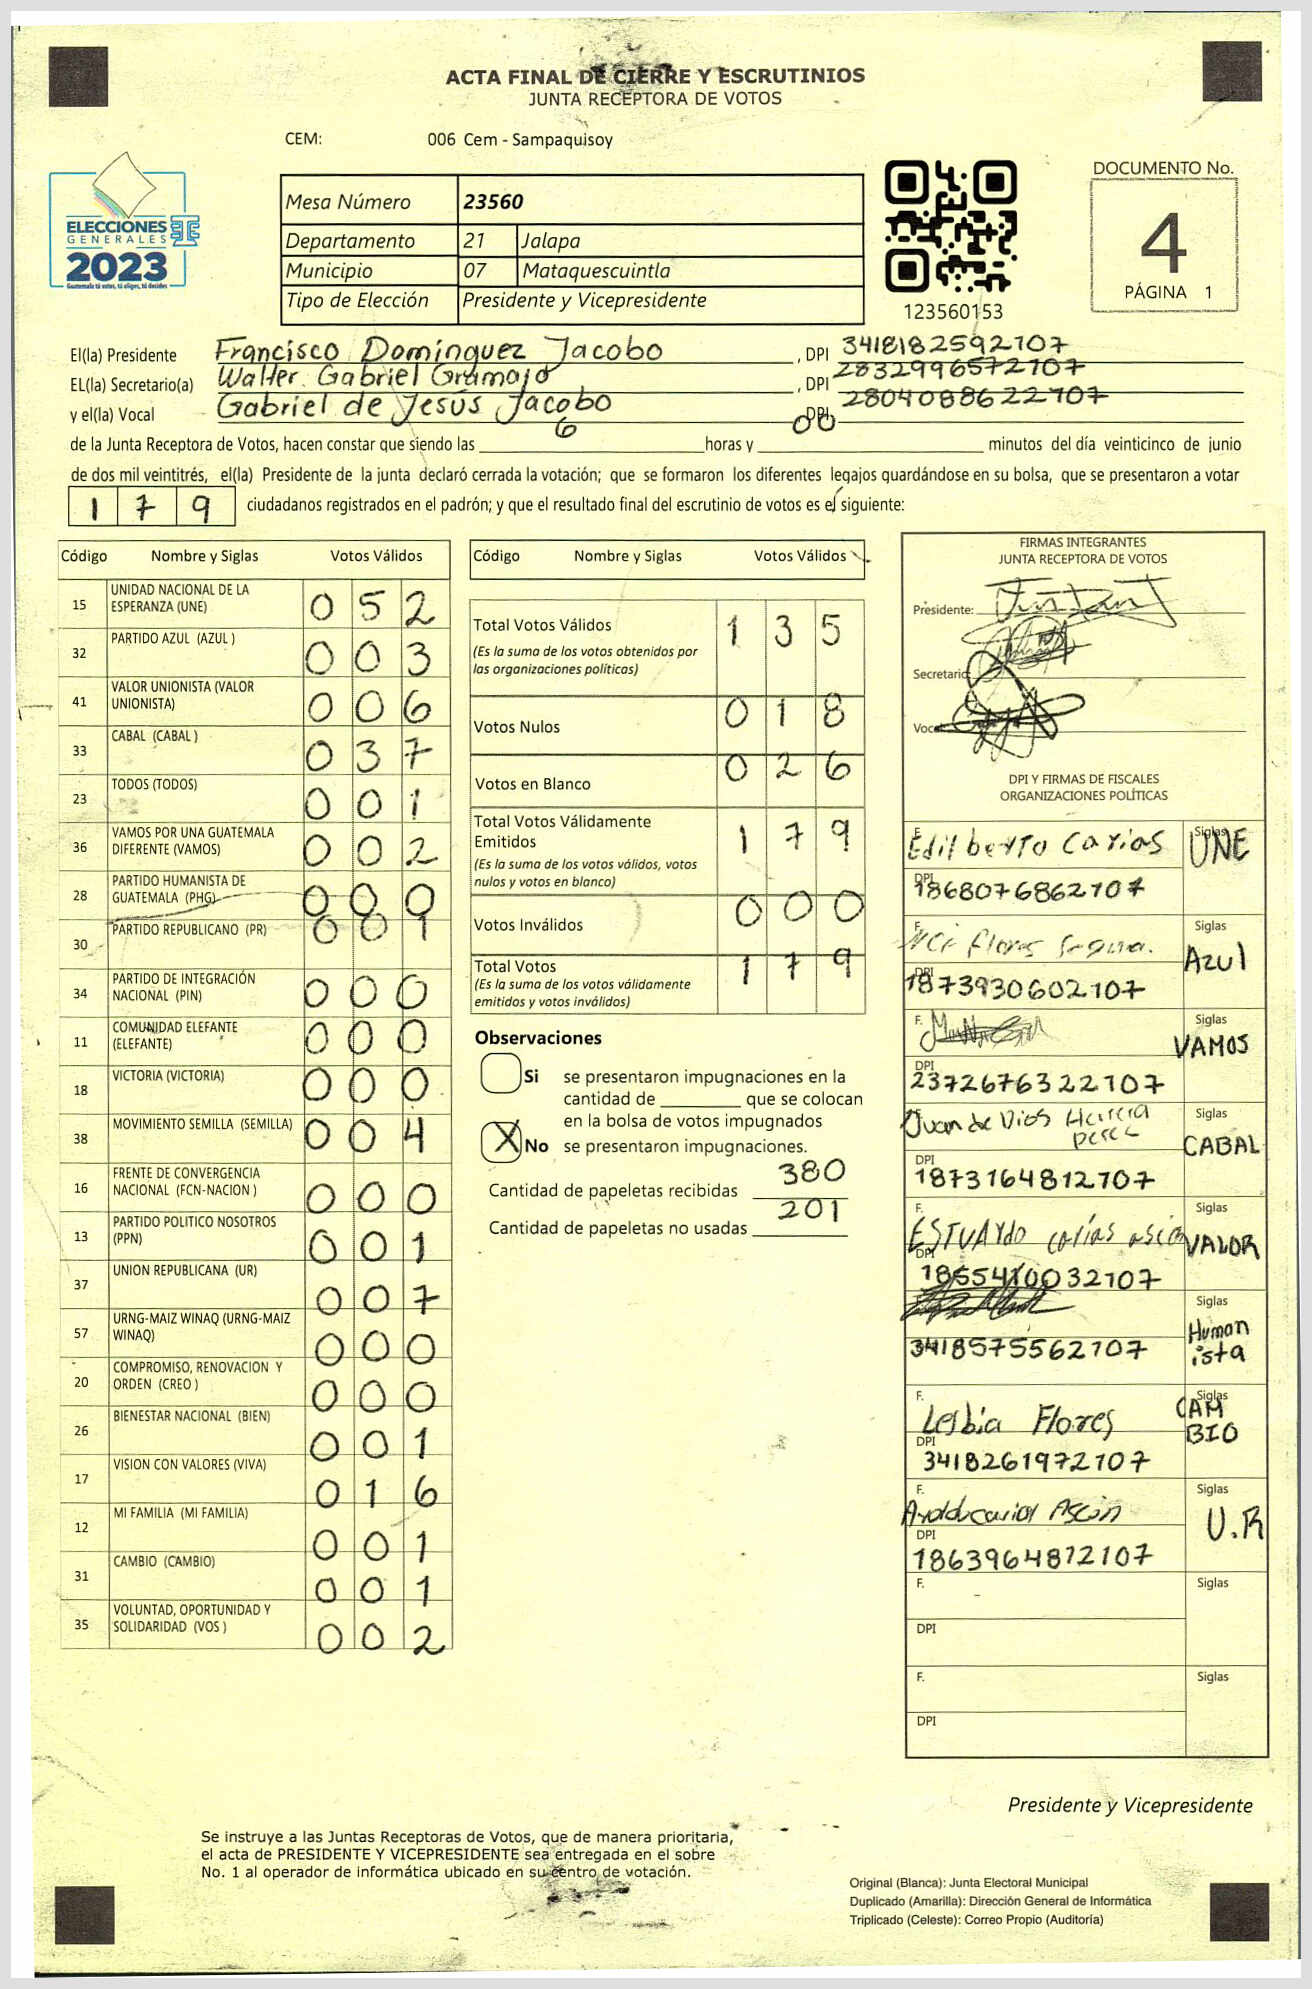 ACTA FINAL DE CIERRE Y ESCRUTINIOS
JUNTA RECEPTORA DE VOTOS
CEM: 006 Cem - Sampaquisoy
ELECCIONES
GENERALES
2023
Guatemala tú votas, tú eliges, tú decides
Mesa Número 23560
Departamento 21 Jalapa
Municipio 07 Mataquescuintla
Tipo de Elección Presidente y Vicepresidente
123560153
DOCUMENTO No.
4
PÁGINA 1
El(la) Presidente Francisco Dominguez Jacobo , DPI 3418182592107
EL(la) Secretario(a) Walter Gabriel Gramajo , DPI 2832996572107
y el(la) Vocal Gabriel de Jesús Jacobo DPI 2804088622107
de la Junta Receptora de Votos, hacen constar que siendo las 6 horas y 00 minutos del día veinticinco de junio
de dos mil veintitrés, el(la) Presidente de la junta declaró cerrada la votación; que se formaron los diferentes legajos guardándose en su bolsa, que se presentaron a votar
1 7 9 ciudadanos registrados en el padrón; y que el resultado final del escrutinio de votos es el siguiente:
Código Nombre y Siglas Votos Válidos
15 UNIDAD NACIONAL DE LA
ESPERANZA (UNE) 0 5 2
32 PARTIDO AZUL (AZUL ) 0 0 3
41 VALOR UNIONISTA (VALOR
UNIONISTA) 0 0 6
33 CABAL (CABAL ) 0 3 7
23 TODOS (TODOS) 0 0 1
36 VAMOS POR UNA GUATEMALA
DIFERENTE (VAMOS) 0 0 2
28 PARTIDO HUMANISTA DE
GUATEMALA (PHG) 0 0 0
30 PARTIDO REPUBLICANO (PR) 0 0 1
34 PARTIDO DE INTEGRACIÓN
NACIONAL (PIN) 0 0 0
11 COMUNIDAD ELEFANTE
(ELEFANTE) 0 0 0
18 VICTORIA (VICTORIA) 0 0 0
38 MOVIMIENTO SEMILLA (SEMILLA) 0 0 4
16 FRENTE DE CONVERGENCIA
NACIONAL (FCN-NACION ) 0 0 0
13 PARTIDO POLITICO NOSOTROS
(PPN) 0 0 1
37 UNION REPUBLICANA (UR) 0 0 7
57 URNG-MAIZ WINAQ (URNG-MAIZ
WINAQ) 0 0 0
20 COMPROMISO, RENOVACION Y
ORDEN (CREO ) 0 0 0
26 BIENESTAR NACIONAL (BIEN) 0 0 1
17 VISION CON VALORES (VIVA) 0 1 6
12 MI FAMILIA (MI FAMILIA) 0 0 1
31 CAMBIO (CAMBIO) 0 0 1
35 VOLUNTAD, OPORTUNIDAD Y
SOLIDARIDAD (VOS ) 0 0 2
Código Nombre y Siglas Votos Válidos
Total Votos Válidos 1 3 5
(Es la suma de los votos obtenidos por
las organizaciones políticas)
Votos Nulos 0 1 8
Votos en Blanco 0 2 6
Total Votos Válidamente
Emitidos 1 7 9
(Es la suma de los votos válidos, votos
nulos y votos en blanco)
Votos Inválidos 0 0 0
Total Votos 1 7 9
(Es la suma de los votos válidamente
emitidos y votos inválidos)
Observaciones
Si se presentaron impugnaciones en la
cantidad de ________ que se colocan
en la bolsa de votos impugnados
X No se presentaron impugnaciones.
Cantidad de papeletas recibidas 380
Cantidad de papeletas no usadas 201
FIRMAS INTEGRANTES
JUNTA RECEPTORA DE VOTOS
Presidente:
Secretario
Vocal
DPI Y FIRMAS DE FISCALES
ORGANIZACIONES POLÍTICAS
F. Edilberto Carias Siglas UNE
DPI 1868076862107
F. Flores Siglas Azul
DPI 1873930602107
F. Siglas VAMOS
DPI 2372676322107
Juan de Dios Siglas CABAL
DPI 1873164812107
F. ESTUARdo carías Siglas VALOR
DPI 1855410032107
Siglas Human
ista
3418575562107
F. Lesbia Flores Siglas CAM
BIO
DPI 3418261972107
F. Siglas U.R
DPI 1863964812107
F. Siglas
DPI
F. Siglas
DPI
Presidente y Vicepresidente
Se instruye a las Juntas Receptoras de Votos, que de manera prioritaria,
el acta de PRESIDENTE Y VICEPRESIDENTE sea entregada en el sobre
No. 1 al operador de informática ubicado en su centro de votación.
Original (Blanca): Junta Electoral Municipal
Duplicado (Amarilla): Dirección General de Informática
Triplicado (Celeste): Correo Propio (Auditoría)